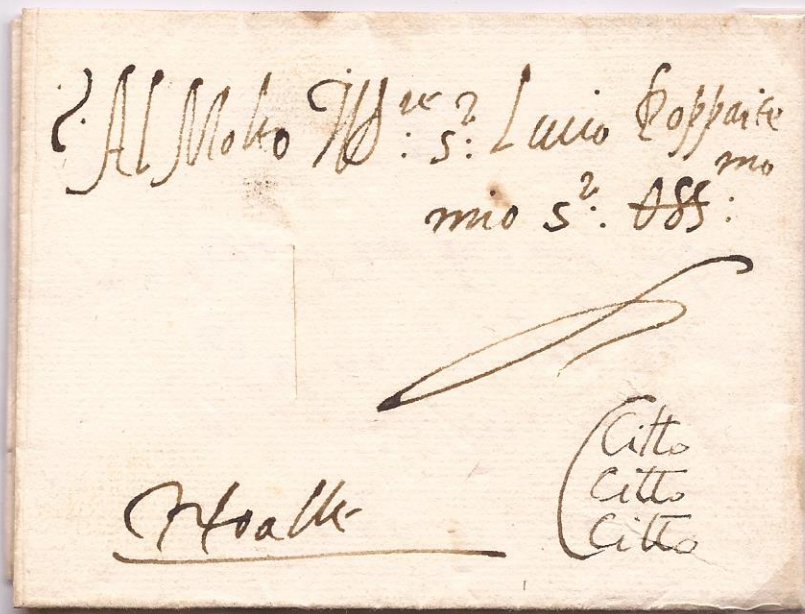 Al Molto Ill^re: s^r: Lucio Poppaite
mio s^r: oss^mo:
Citto
Citto
Citto